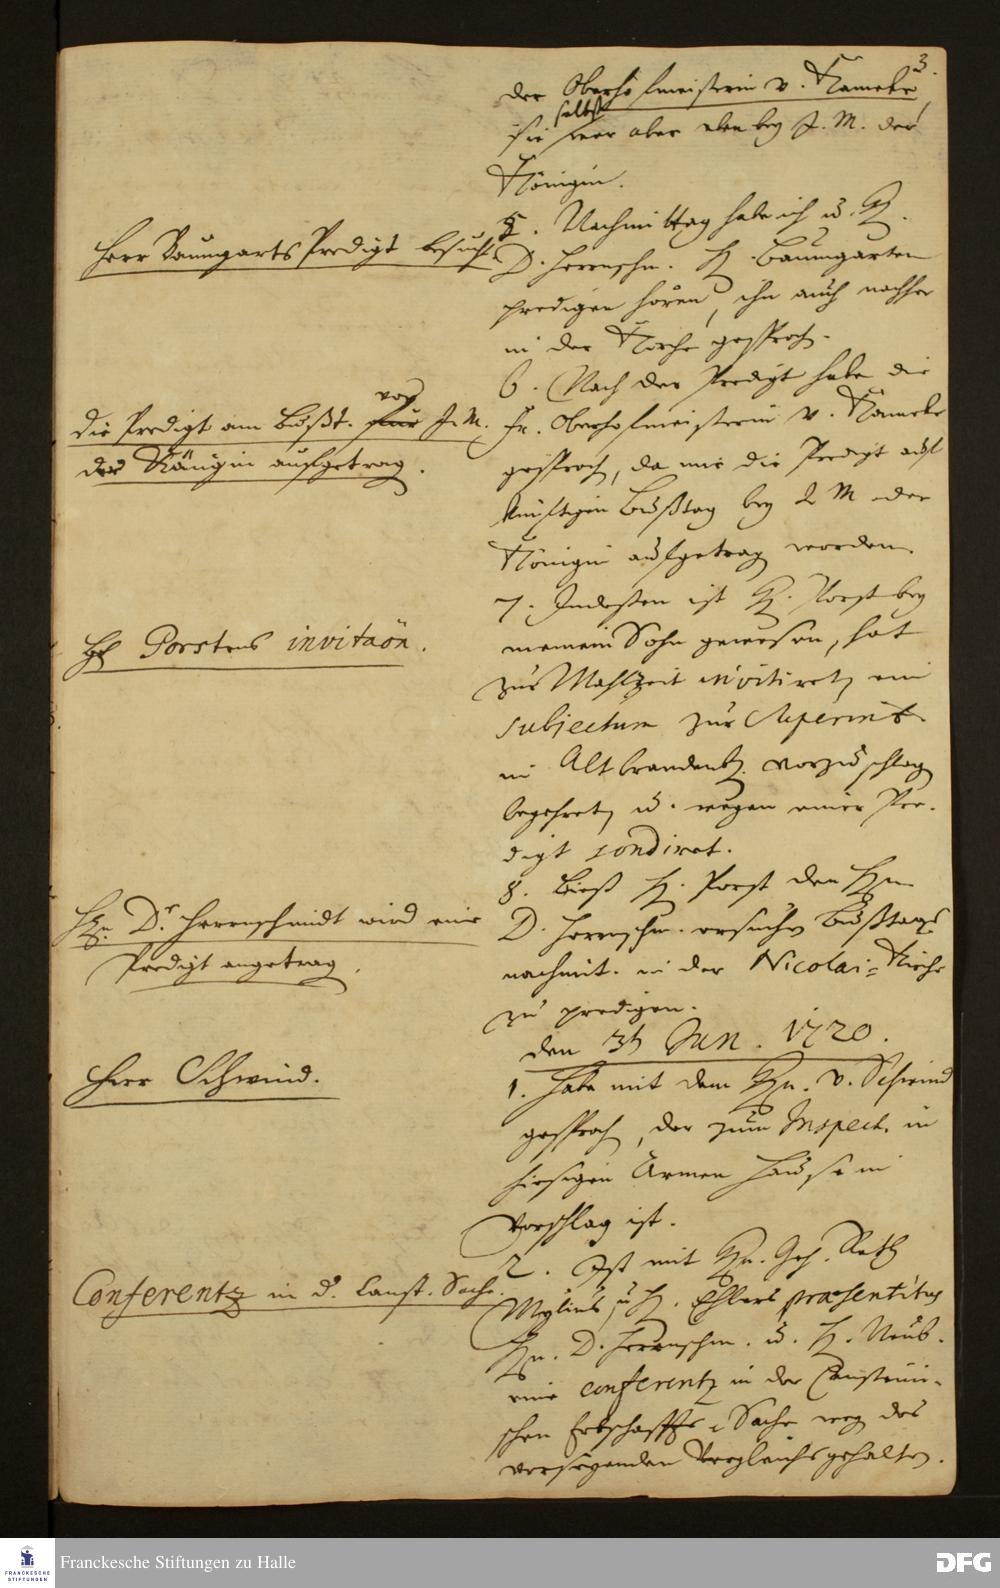 3.
der Oberhofmeisterin v. Kameke,
sie selbst war aber eben bey I. M. der
Königin.
Herr Baumgartens Predigt besucht.
5. Nachmittag habe ich u. H.
D. Herrnschm. H. Baumgarten
predigen hören, ihn auch nachher
in der Kirche gesproch.
die Predigt am Bußt. vor I. M.
der Königin aufgetrag.
6. Nach der Predigt habe die
Fr. Oberhofmeisterin v. Kameke
gesproch, da mir die Predigt auf
künftigen Bußtag bey I M der
Königin aufgetrag worden.
H Porstens invitaön.
7. Indessen ist H. Porst bey
meinem Sohn gewesen, hat
zur Mahlzeit invitiret, ein
subjectum zur Superint.
in Alt brandenb. vorzuschlag
begehret, u. wegen einer Pre-
digt sondiret.
Hn. Dr Herrnschmidt wird eine
Predigt angetrag.
8. Ließ H. Porst den Hn
D. Herrnschm. ersuchen Bußtags
nachmit. in der Nicolai-Kirche
zu predigen.
den 3t Jun. 1720.
Herr Schwind.
1. Habe mit dem Hn. v. Schwind
gesproch, der zum Inspect. in
hiesigen Armen Hause in
Vorschlag ist.
Conferentz in d. Canst. Sache.
2. Ist mit Hn. Geh. Rath
Mylius, u H. Ehlers praesentibus
Hn. D. Herrnschm. u. H. Neub.
eine conferentz in der Cansteini-
schen Erbschaffts-Sache weg des
vorseyenden Vergleichs gehalten.
Franckesche Stiftungen zu Halle
FRANCKESCHE
STIFTUNGEN
DFG